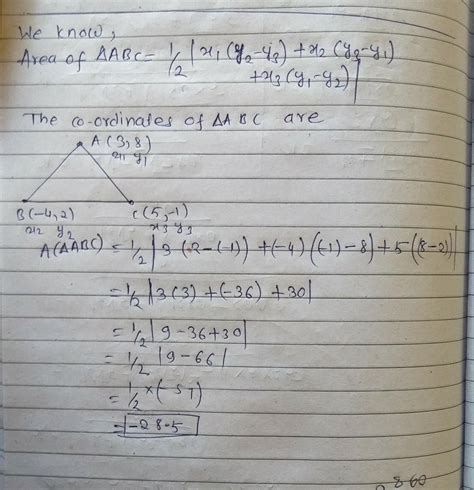 We know,
Area of ΔABC = 1/2 | x1 (y2-y3) + x2 (y3-y1)
+ x3 (y1-y2) |
The co-ordinates of ΔABC are
A (3, 8)
x1 y1
B(-4, 2) C(5, -1)
x2 y2 x3 y3
A(ΔABC) = 1/2 | 3 (2-(-1)) + (-4) ((-1)-8) + 5 (8-2) |
= 1/2 | 3(3) + (-36) + 30 |
= 1/2 | 9 - 36 + 30 |
= 1/2 | 9 - 66 |
= 1/2 × (-57)
= -28.5